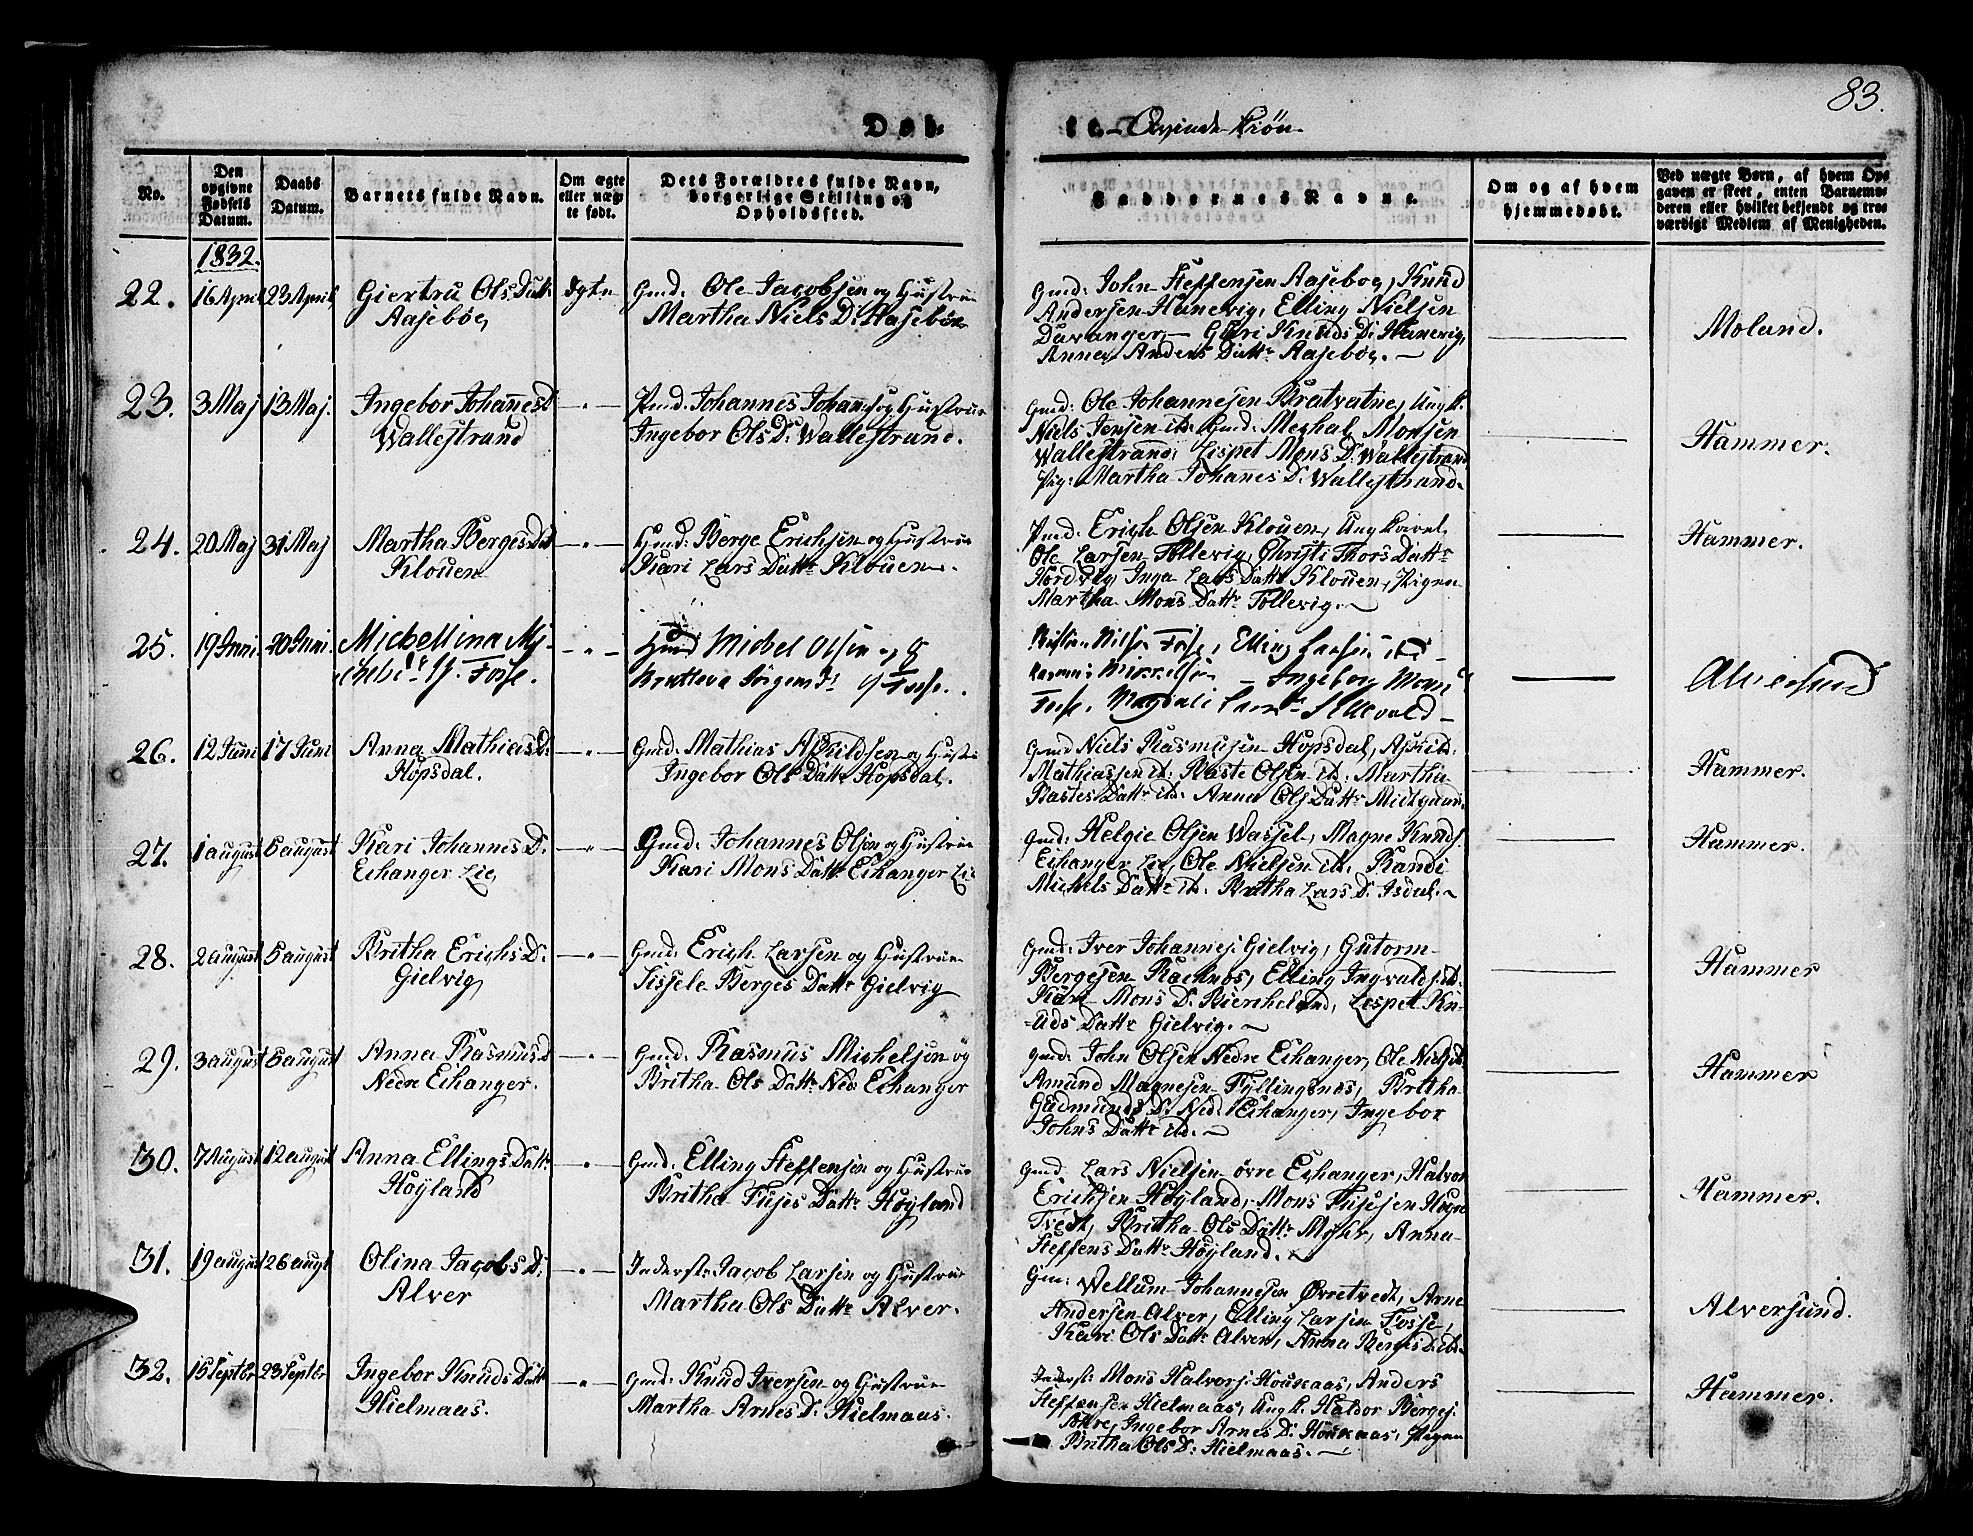 83.
Døb-
te. Qvinde-Kiön
No.
Den opgivne Fødsels Datum.
Daabs Datum.
Barnets fulde Navn.
Om ægte eller uægte født.
Dets Forældres fulde Navn, borgerlige Stilling og Opholdssted.
Faddernes Navne.
Om og af hvem hjemmedøbt.
Ved uægte Børn, af hvem Opgaven er skeet, enten Barnemoderen eller hvilket bekjendt og troværdigt Medlem af Menigheden.
1832.
22. 16 April 23 April Giertru Ols Datt: Ægte Gmd: Ole Jacobsen og Hustrue
Aaseböe, Martha Niels D: Aaseböe
Gmd: John Steffensen Aaseboe, Knud
Andersen Hanevig, Elling Nielsen
Davanger, Knuds D: Hanevig,
Anna Anders Datt: Aasebøe.
Moland.
23. 3 Maj 13 Maj. Ingebor Johannes D - " - Pmd: Johannes Johans: og Hustrue
Wallestrand Ingebor Ols D: Wallestrand.
Gmd: Ole Johannesen Bratvatne, Ung k.
Niels Jensen it: Gmd: Meghal Monsen
Wallestrand, Lispet Mons D: Wallestrand
Pig: Martha Johannes D: Wallestrand.
Hammer.
24. 20 Maj 31 Maj Martha Berges Dat - " - Gmd: Berge Erichsen og Hustrue
Klouen Kari Lars Datt: Klouen.
Pmd: Erich Olsen Klouen, Ung karl
Ole Larsen Tollevig, Christi Thors Datt:
Hordvig, Inga Lars Datt: Klouen, Pigen
Martha Mons Datt: Tollevig.
Hammer.
25. 19 Juni 20 Juni. Michellina Mi-
chels Dr. Fosse. - " - Gmd Michel Olsen og
Jörgens Dr Fosse.
Nilsen Fosse, Elling Larsen it:
Mikkelsen - Ingeborg Mons D
Fosse, Magdali Lars Dr
Alversund
26. 12 Juni 17 Juni Anna Mathias D: - " - Gmd: Mathias Askildsen og Hustr:
Hopsdal. Ingebor Ols Datt: Hopsdal.
Gmd Niels Rasmusen Hopsdal, Askild
Mathiassen it: Raste Olsen it: Martha
Rastes Datt: it: Anna Ols Datt: Midtgaard.
Hammer.
27. 1 august 5 august Kari Johannes D. - " - Gmd: Johannes Olsen og Hustrue
Eihanger Lie, Kari Mons Datt: Eihanger Lie
Gmd: Helgie Olsen Wassel, Magne Knuds.
Eihanger Lie, Ole Nielsen it: Randi
Michels Datt: it: Britha Lars D. Isdal.
Hammer.
28. 2 august 5 august Britha Erichs D: - " - Gmd: Erich Larsen og Hustrue
Gielvig, Sissele Berges Datt: Gielvig
Gmd: Iver Johannes: Gielvig, Gutorm
Bergesen Rochnøs, Elling Ingvalds: it:
Kari Mons D: Lespet Kn-
uds Datt: Gielvig.
Hammer
29. 3 august 5 august Anna Rasmus D - " - Gmd: Rasmus Michelsen og
Nedre Eihanger. Britha Ols Datt: Ned Eihanger
Gmd: John Olsen Nedre Eihanger, Ole Niels: it:
Amund Magnesen Fyllingsnøs, Britha
Gudmunds D: Ned: Eihanger, Ingebor
Johns Datt: it:
Hammer
30. 7 August 12 august Anna Ellings Datt: - " - Gmd: Elling Steffensen og Hustrue
Höyland Britha Thies Datt: Höyland
Gmd: Lars Nielsen øvre Eihanger, Halvor
Erichsen Höyland, Mons Thiesen Høyse
Tvedt, Britha Ols Datt: Myhr, Anna
Steffens Datt: Höyland.
Hammer.
31. 19 august 26 augt Olina Jacobs D: - " - Inderst: Jacob Larsen og Hustrue
Alver Martha Ols Datt: Alver.
Gm: Wellum Johannesen Øvretvedt, Arne
Andersen Alver, Elling Larsen Fosse,
Kari Ols Datt: Alver, Anna Berges D: ibd.
Alversund.
32. 15 Septbr 23 Septbr Ingebor Knuds Datt - " - Gmd: Knud Iversen og Hustrue
Hielmaas. Martha Arnes D: Hielmaas.
Inderst: Mons Halvors: Houkaas, Anders
Steffensen Hielmaas, Ung k. Haldor Berges:
Ingebor Arnes D: Houkaas, Pigen
Britha Ols D: Hielmaas.
Hammer.